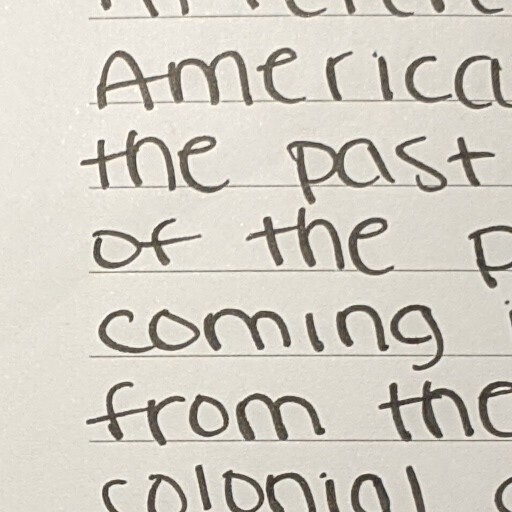 America
the past
of the p
coming
from the
colonial